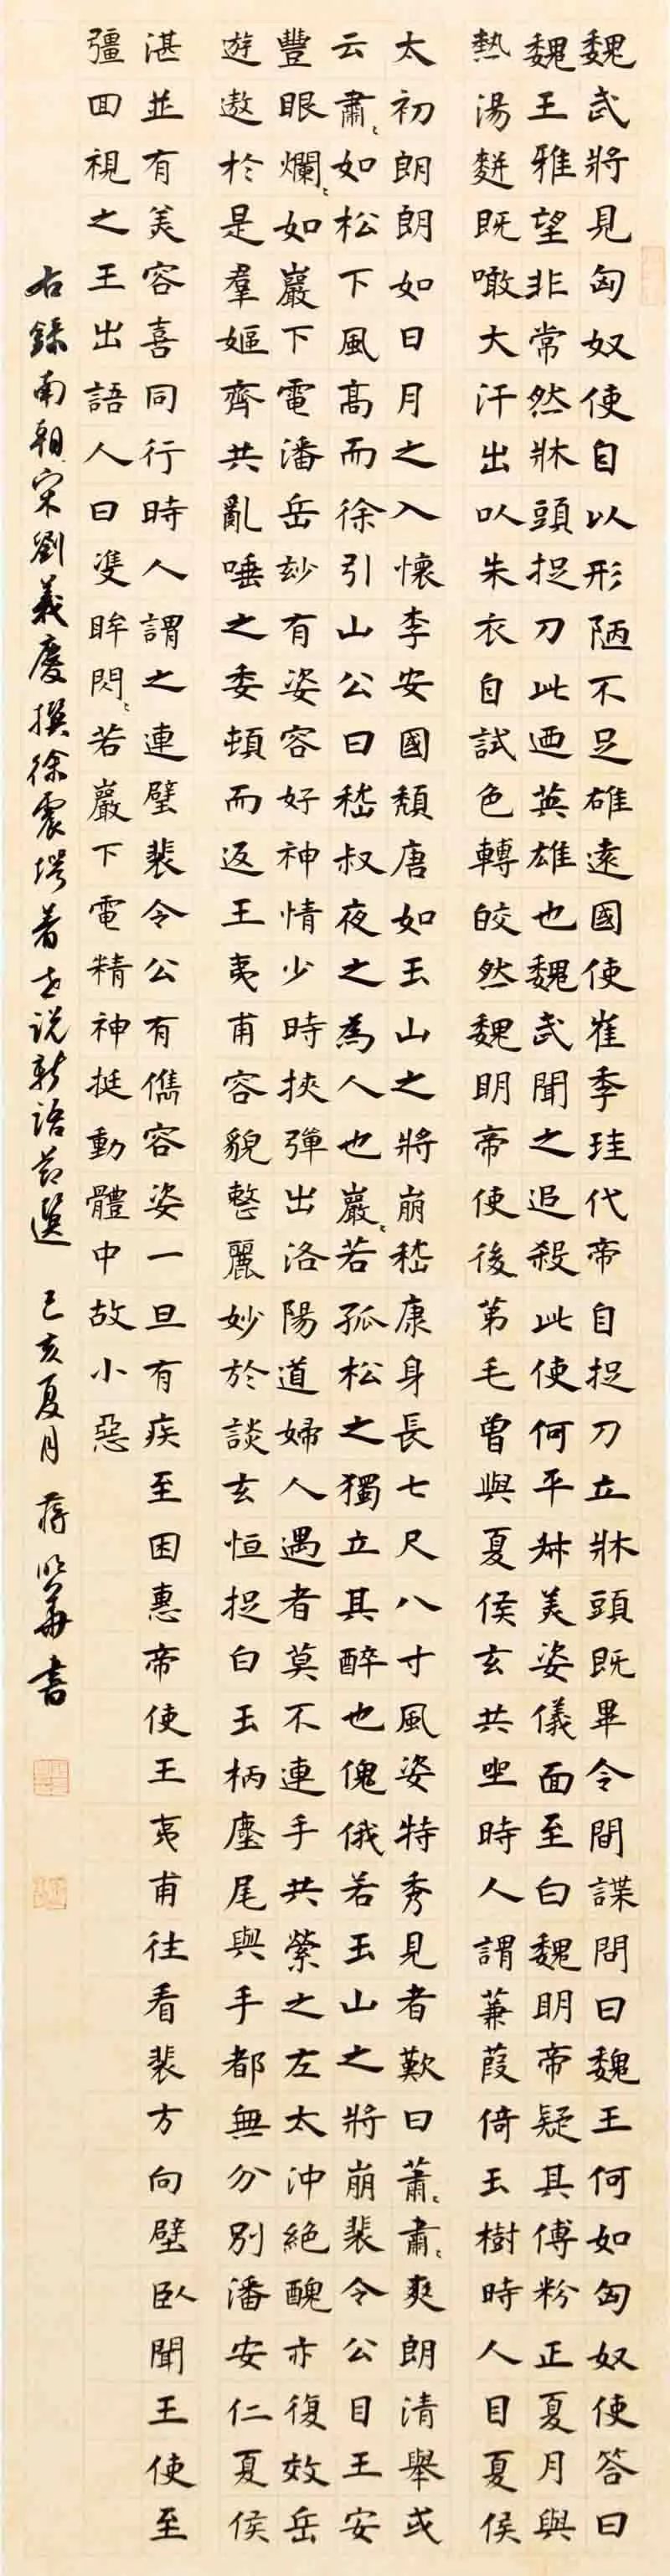 魏武將見匈奴使自以形陋不足雄遠國使崔季珪代帝自捉刀立牀頭既畢令間諜問曰魏王何如匈奴使答曰
魏王雅望非常然牀頭捉刀此迺英雄也魏武聞之追殺此使何平叔美姿儀面至白魏明帝疑其傅粉正夏月與
熱湯麪既噉大汗出以朱衣自試色轉皎然魏明帝使後弟毛曾與夏侯玄共坐時人謂蒹葭倚玉樹時人目夏侯
太初朗朗如日月之入懷李安國頹唐如玉山之將崩嵇康身長七尺八寸風姿特秀見者歎曰蕭〻肅〻爽朗清舉或
云肅〻如松下風高而徐引山公曰嵇叔夜之為人也巖〻若孤松之獨立其醉也傀俄若玉山之將崩裴令公目王安
豐眼爛〻如巖下電潘岳妙有姿容好神情少時挾彈出洛陽道婦人遇者莫不連手共縈之左太沖絕醜亦復效岳
遊遨於是羣嫗齊共亂唾之委頓而返王夷甫容貌整麗妙於談玄恒捉白玉柄麈尾與手都無分別潘安仁夏侯
湛並有美容喜同行時人謂之連璧裴令公有儁容姿一旦有疾至困惠帝使王夷甫往看裴方向壁臥聞王使至
彊回視之王出語人曰雙眸閃〻若巖下電精神挺動體中故小惡
右錄南朝宋劉義慶撰徐震堮著世说新語節選 己亥夏月 蔣 華書